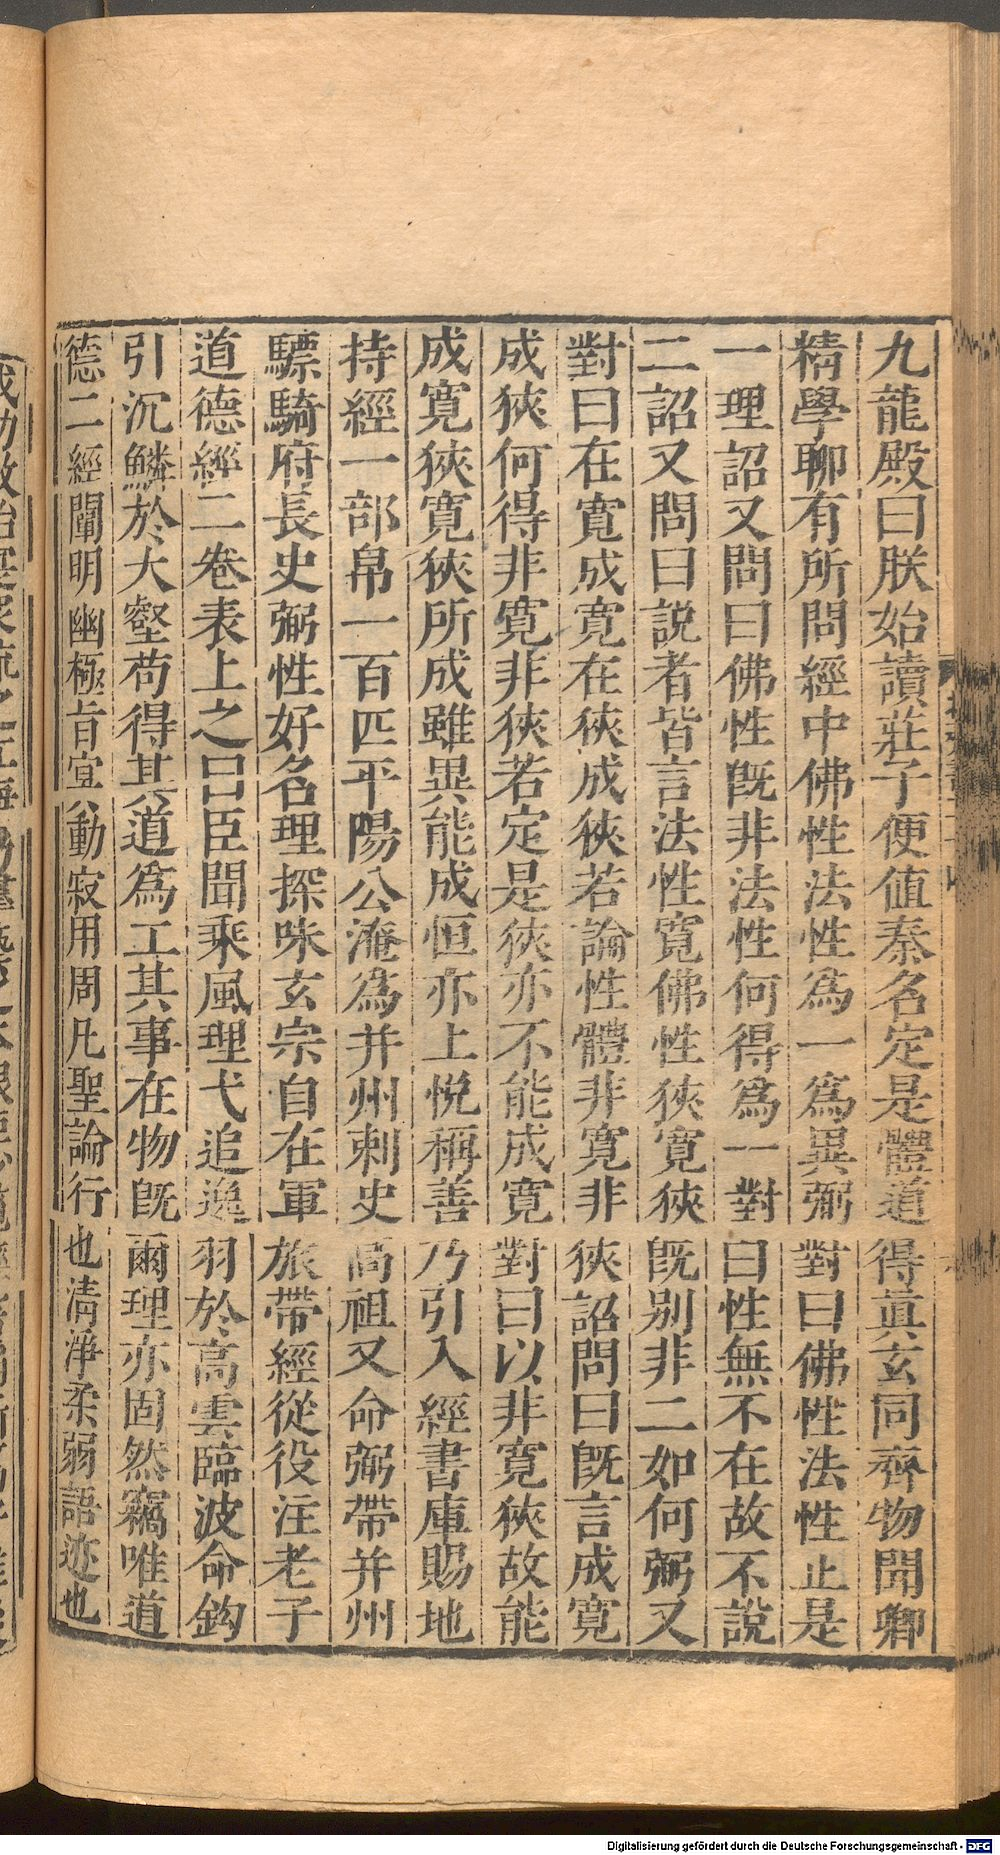 九龍殿曰朕始讀莊子便值秦名定是體道得眞玄同齊物聞卿
精學聊有所問經中佛性法性爲一爲異弼對曰佛性法性止是
一理詔又問曰佛性旣非法性何得爲一對曰性無不在故不說
二詔又問曰說者皆言法性寬佛性狹寬狹旣别非二如何弼又
對曰在寬成寬在狹成狹若論性體非寬非狹詔問曰旣言成寬
成狹何得非寬非狹若定是狹亦不能成寬對曰以非寬狹故能
成寬狹寬狹所成雖異能成恒亦上悅稱善乃引入經書庫賜地
持經一部帛一百匹平陽公淹爲并州刺史高祖又命弼帶并州
驃騎府長史弼性好名理探味玄宗自在軍旅帶經從役注老子
道德經二卷表上之曰臣聞乘風理弋追逸羽於高雲臨波命鈎
引沉鱗於大壑苟得其道爲工其事在物旣爾理亦固然竊唯道
德二經闡明幽極旨宜八動寂用周凡聖論行也清淨柔弱語迹也
Digitalisierung gefördert durch die Deutsche Forschungsgemeinschaft - DFG